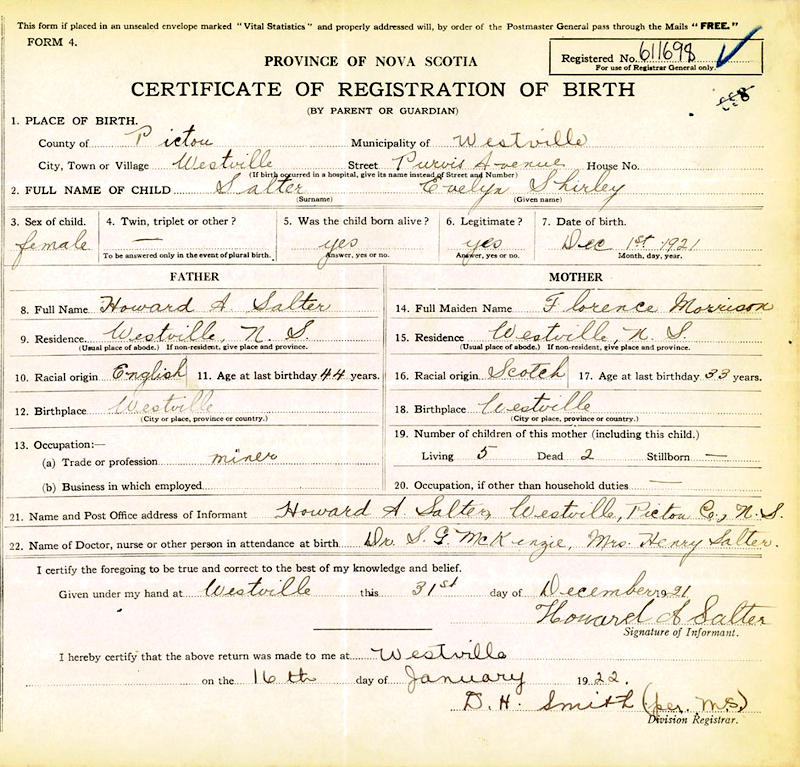 This form if placed in an unsealed envelope marked "Vital Statistics" and properly addressed will, by order of the Postmaster General pass through the Mails "FREE."
FORM 4.
Registered No. 611698
For use of Registrar General only.
PROVINCE OF NOVA SCOTIA
CERTIFICATE OF REGISTRATION OF BIRTH
(BY PARENT OR GUARDIAN)
1. PLACE OF BIRTH.
County of Pictou Municipality of Westville
City, Town or Village Westville Street Purvis Avenue House No.
(If birth occurred in a hospital, give its name instead of Street and Number)
2. FULL NAME OF CHILD Salter Evelyn Shirley
(Surname) (Given name)
3. Sex of child. 4. Twin, triplet or other? 5. Was the child born alive? 6. Legitimate? 7. Date of birth.
female — yes yes Dec 1st 1921
To be answered only in the event of plural birth. Answer, yes or no. Answer, yes or no. Month, day, year.
FATHER
8. Full Name Howard A Salter
9. Residence Westville, N. S.
(Usual place of abode.) If non-resident, give place and province.
10. Racial origin English 11. Age at last birthday 44 years.
12. Birthplace Westville
(City or place, province or country.)
13. Occupation:—
(a) Trade or profession miner
(b) Business in which employed
MOTHER
14. Full Maiden Name Florence Morrison
15. Residence Westville, N. S.
(Usual place of abode.) If non-resident, give place and province.
16. Racial origin Scotch 17. Age at last birthday 33 years.
18. Birthplace Westville
(City or place, province or country.)
19. Number of children of this mother (including this child.)
Living 5 Dead 2 Stillborn —
20. Occupation, if other than household duties —
21. Name and Post Office address of Informant Howard A. Salter, Westville, Pictou Co., N. S.
22. Name of Doctor, nurse or other person in attendance at birth Dr. S. G. McKenzie, Mrs. Henry Salter.
I certify the foregoing to be true and correct to the best of my knowledge and belief.
Given under my hand at Westville this 31st day of December 1921
Howard A Salter
Signature of Informant.
I hereby certify that the above return was made to me at Westville
on the 16th day of January 1922.
D. H. Smith (per. M.S.)
Division Registrar.